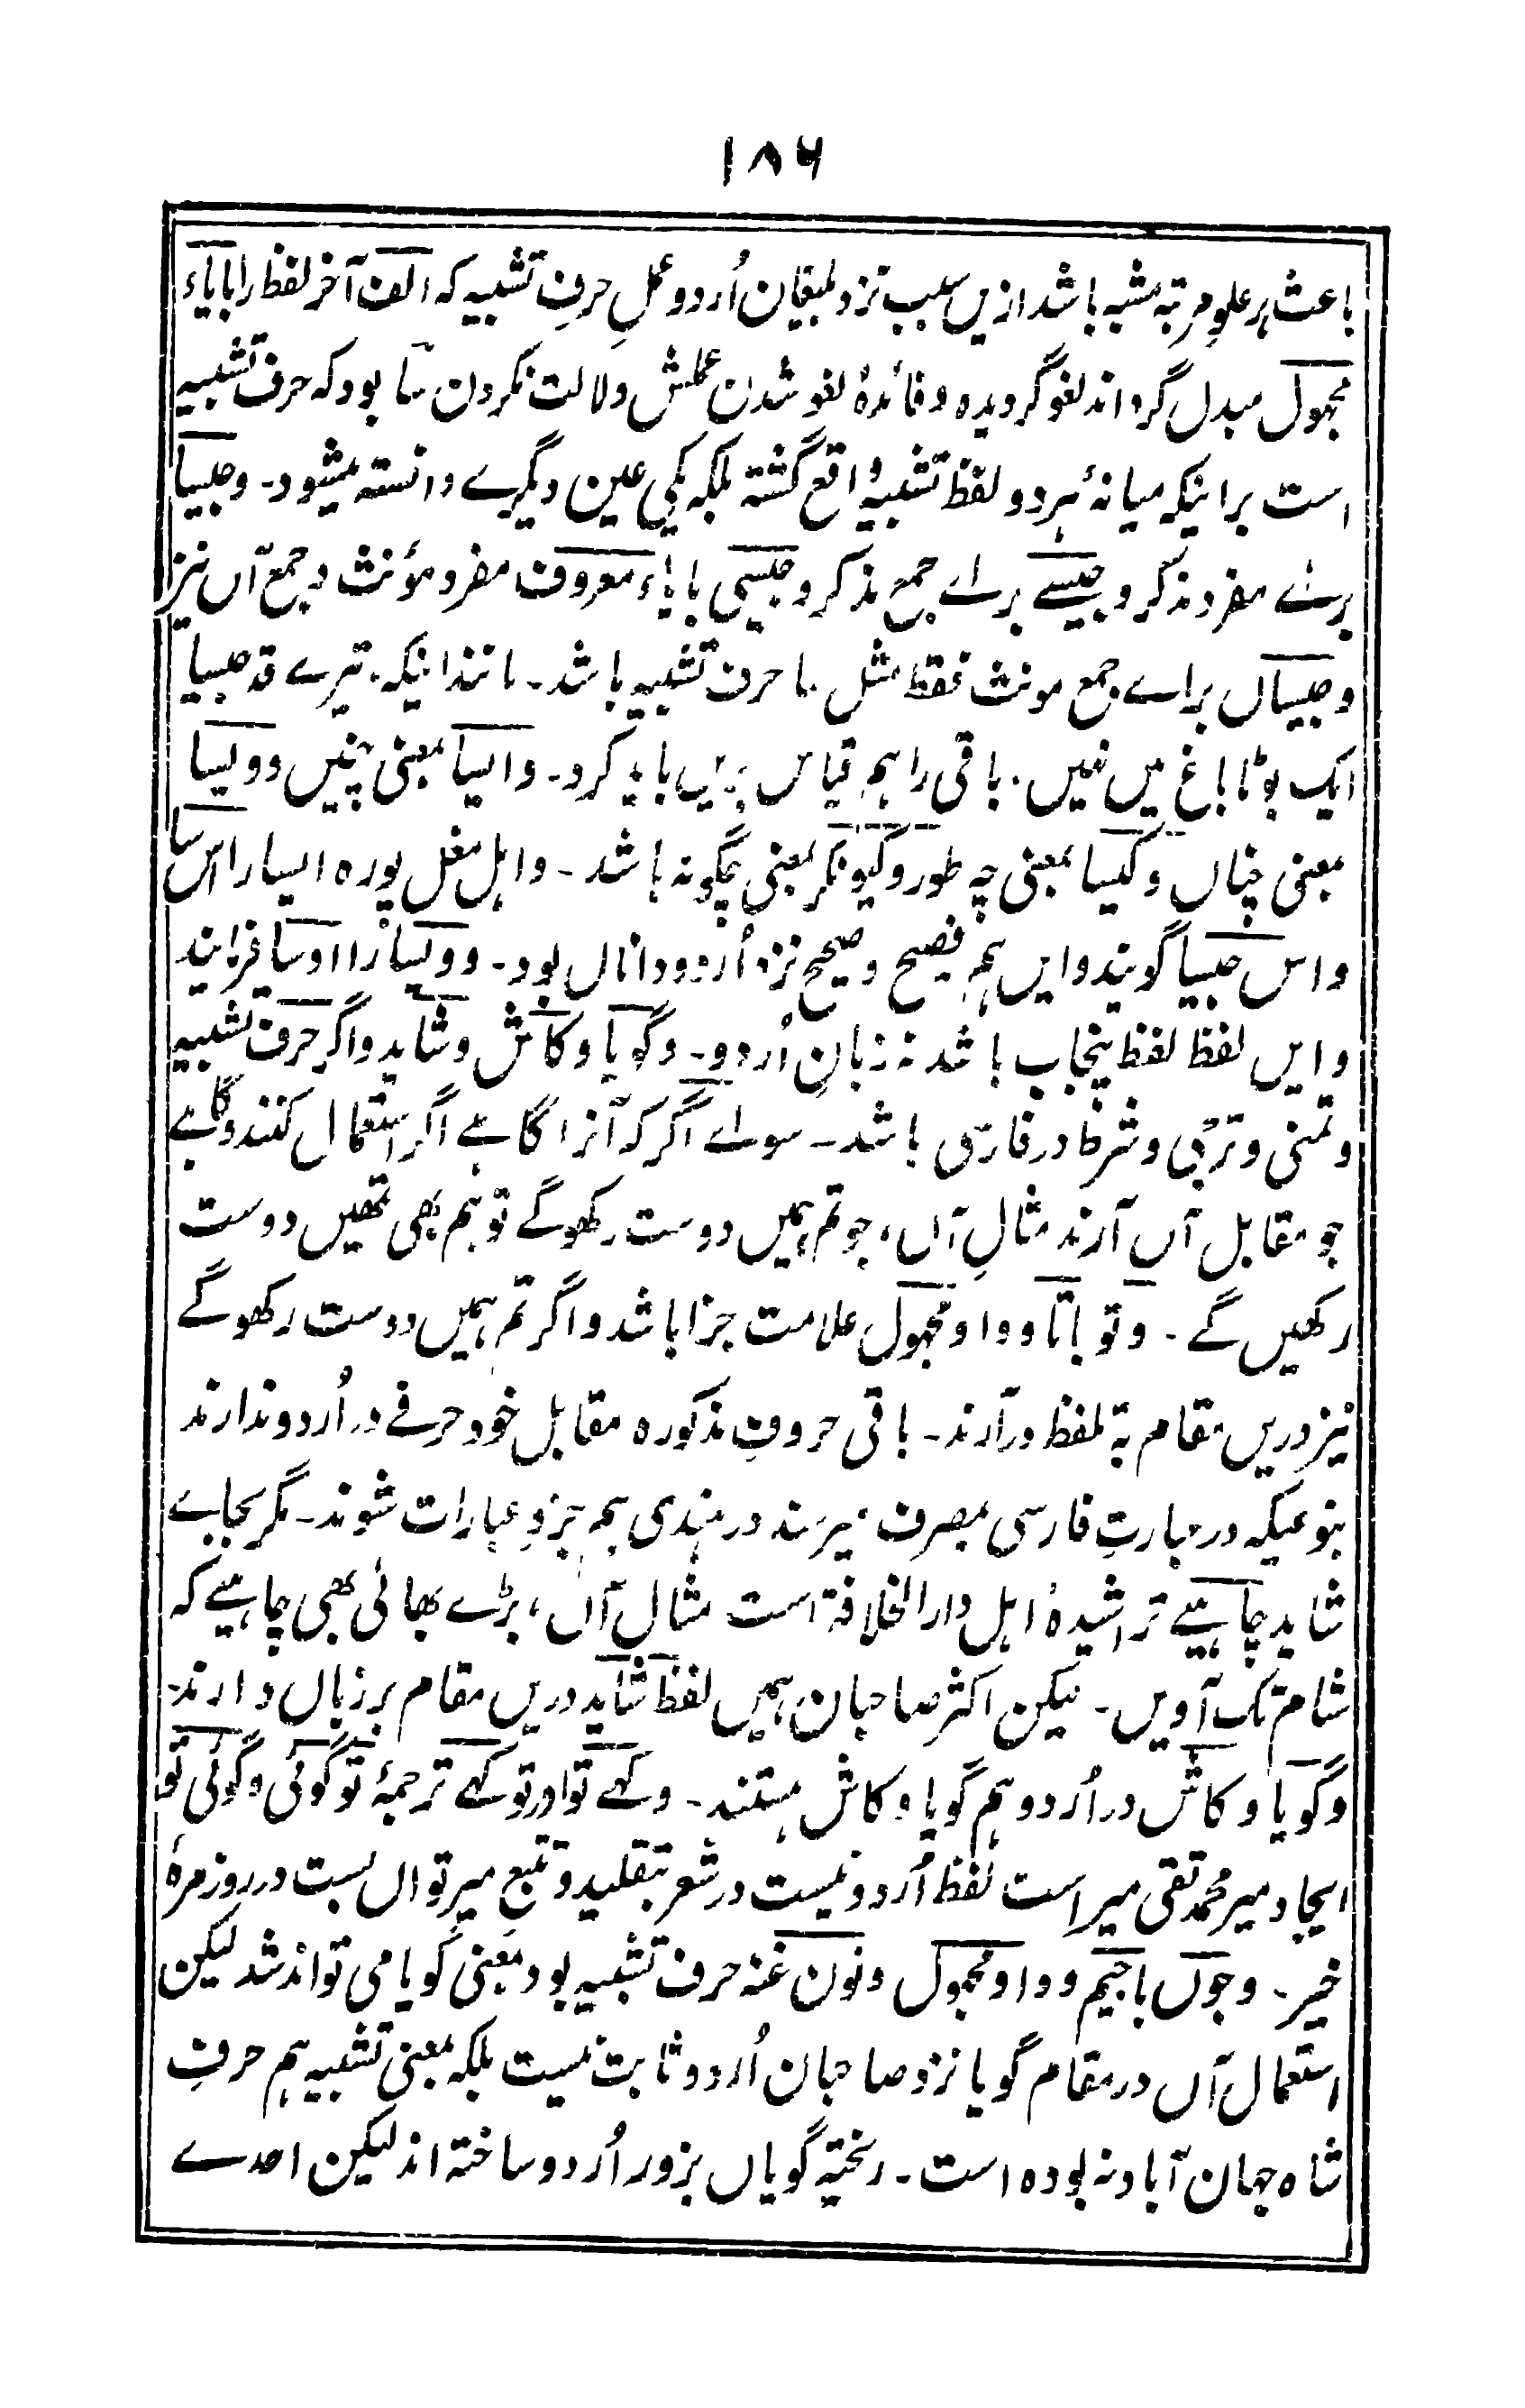 ۱۸۶
باعث بر علوِ مرتبہ مشبہ باشد ازیں سبب نزد لبیقان اُردو عملِ حرفِ تشبیہ کہ الف آخر لفظ را با یاء
مجہول مبدل گرداند لغو گردیدہ و فائدۂ لغو شدن عملش دلالت نکردن سا بود کہ حرف تشبیہ
است بر اینکہ میانۂ ہر دو لفظ تشبیہ واقع گشتہ بلکہ یکی عین دیگرے دانستہ میشود۔ و جیسا
براے مفرد مذکر و جیسے براے جمع مذکر و جیسی با یاء معروف مفرد مؤنث و جمع آں نیز
و جیسیاں براے جمع مونث فقط مثل سا حرف تشبیہ باشد۔ مانند اینکہ، تیرے قد جیسا
ایک بوٹا باغ میں نہیں۔ باقی را ہم قیاس بریں باید کرد۔ و ایسا بمعنی چنیں و ویسا
بمعنی چناں و کیسا بمعنی چہ طور و کیونکر بمعنی چگونہ باشد۔ و اہل مغل پورہ ایسا را اس سا
و اس جیسا گویند و ایں ہم فصیح و صحیح نزد اُردو دانان بود۔ و ویسا را اوسا فرمایند
و ایں لفظ لفظ پنجاب باشد نہ زبانِ اُردو۔ و گویا و کاش و شاید و اگر حرف تشبیہ
و تمنی و ترجی و شرط در فارسی باشد۔ سواے اگر کہ آنرا گاہے اگر استعمال کنند و گاہے
جو مقابل آں آرند مثالِ آں، جو تم ہمیں دوست رکھوگے تو ہم بھی تمھیں دوست
رکھیں گے۔ و تو با تا و واو مجہول علامت جزا باشد و اگر تم ہمیں دوست رکھوگے
نیز دریں مقام بہ تلفظ درآرند۔ باقی حروفِ مذکورہ مقابل خود حرفے در اُردو ندارند
بنوعیکہ در عبارتِ فارسی بصرف میرسند در ہندی ہم جزوِ عبارات شوند۔ مگر بجاے
شاید چاہیے تراشیدۂ اہل دارالخلافۃ است مثال آں، بڑے بھائی بھی چاہیے کہ
شام تک آویں۔ لیکن اکثر صاحبان ہمیں لفظ شاید دریں مقام بر زبان دارند۔
و گویا و کاش در اُردو ہم گویا و کاش ہستند۔ و کہے تو اور تو کہے ترجمۂ تو گوئی و گوئی تو
ایجاد میر محمد تقی میر است لفظ اُردو نیست در شعر بتقلید و تتبع میر توال بست در روزمرۂ
خیر۔ و جوں با جیم و واو مجہول و نون غنہ حرف تشبیہ بود بمعنی گویا می تواند شد لیکن
استعمال آں در مقام گویا نزد صاحبان اُردو ثابت نیست بلکہ بمعنی تشبیہ ہم حرفِ
شاہ جہان آباد نہ بودہ است۔ ریختہ گویاں بزور اُردو ساختہ اند لیکن احدے